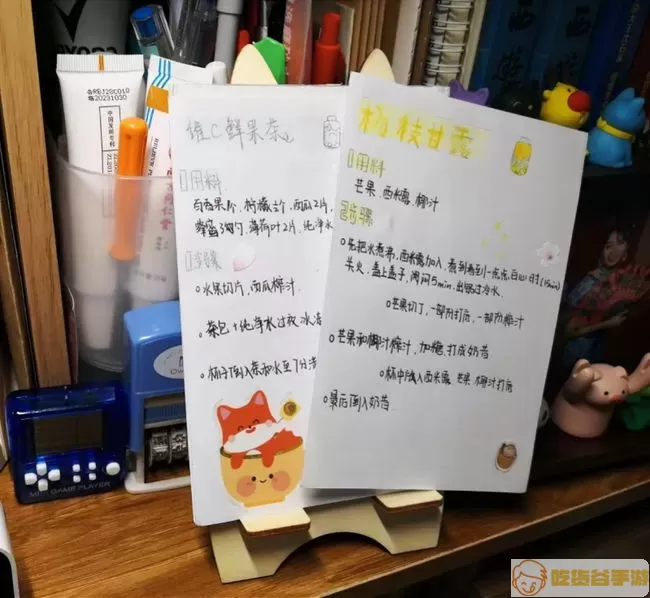 维C鲜果茶
用料
百香果1个,柠檬半个,西瓜2片,
蜂蜜3勺,薄荷叶2片,纯净水
步骤
水果切片,西瓜榨汁
茶包+纯净水过夜冰冻
杨枝甘露
用料
芒果,西米露,椰汁
步骤
先把水煮沸,西米露加入,煮到看到一点点白心时(15min)
关火,盖上盖子,闷闷5min,出锅过冷水
芒果切丁,一部分打底,一部分榨汁
芒果和椰汁榨汁,加糖,打成奶昔
杯中放入西米露 芒果 椰汁打底
最后倒入奶昔
20231030
中国发明专利
MINI GAME PLAYER
吃货谷手游